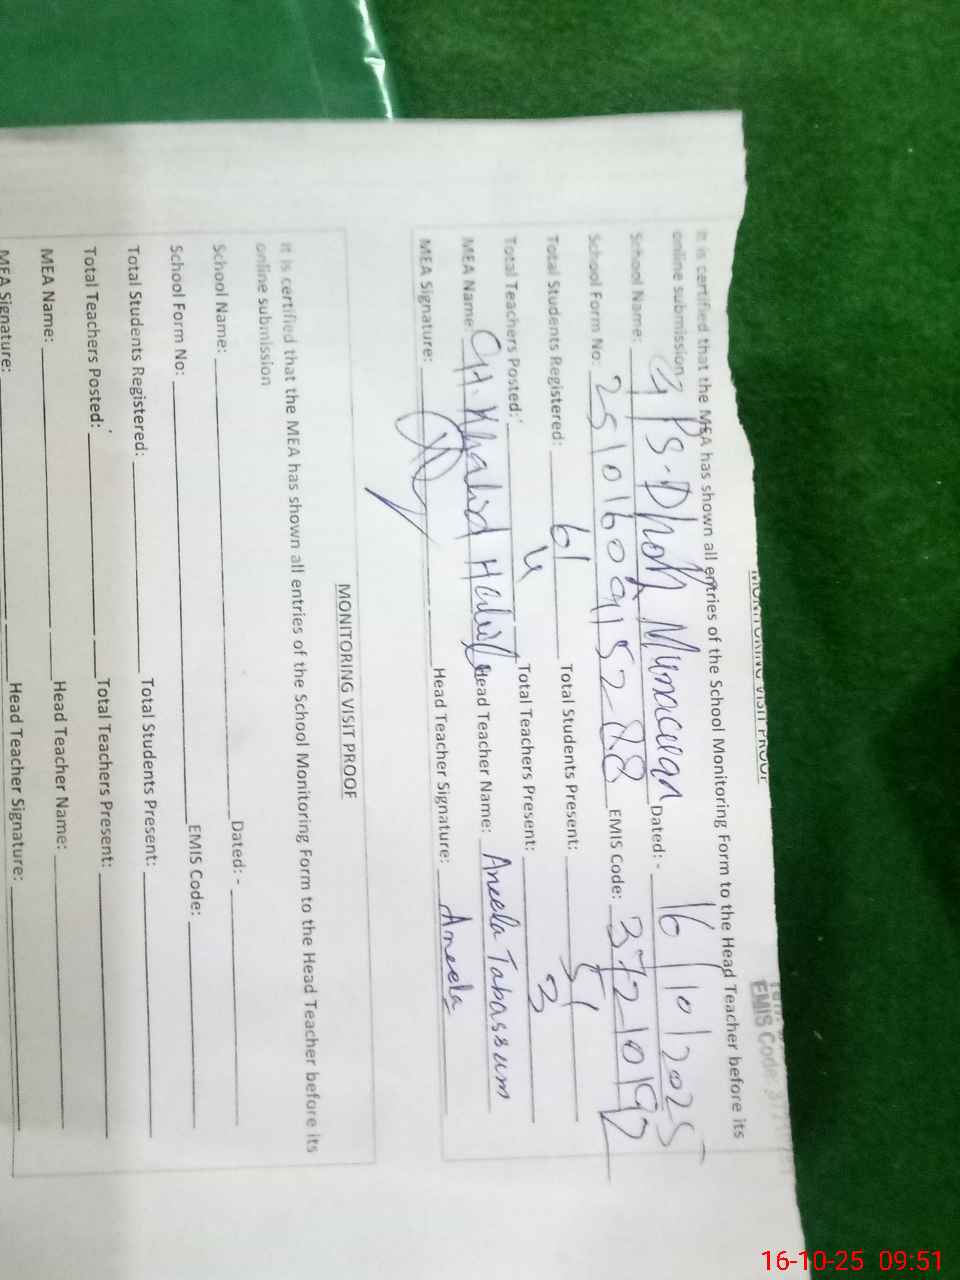 MONITORING VISIT PROOF
It is certified that the MEA has shown all entries of the School Monitoring Form to the Head Teacher before its
online submission
School Name: GPS. Dhok Dated: - 16/10/2025
School Form No: 25101609152288 EMIS Code: 37210197
Total Students Registered: 61 Total Students Present: 51
Total Teachers Posted: 4 Total Teachers Present: 3
MEA Name: GH. Khalid Head Teacher Name: Aneela Tabassum
MEA Signature: Head Teacher Signature: Aneela
MONITORING VISIT PROOF
It is certified that the MEA has shown all entries of the School Monitoring Form to the Head Teacher before its
online submission
School Name: Dated: -
School Form No: EMIS Code:
Total Students Registered: Total Students Present:
Total Teachers Posted: Total Teachers Present:
MEA Name: Head Teacher Name:
MEA Signature: Head Teacher Signature:
EMIS Code:
16-10-25 09:51